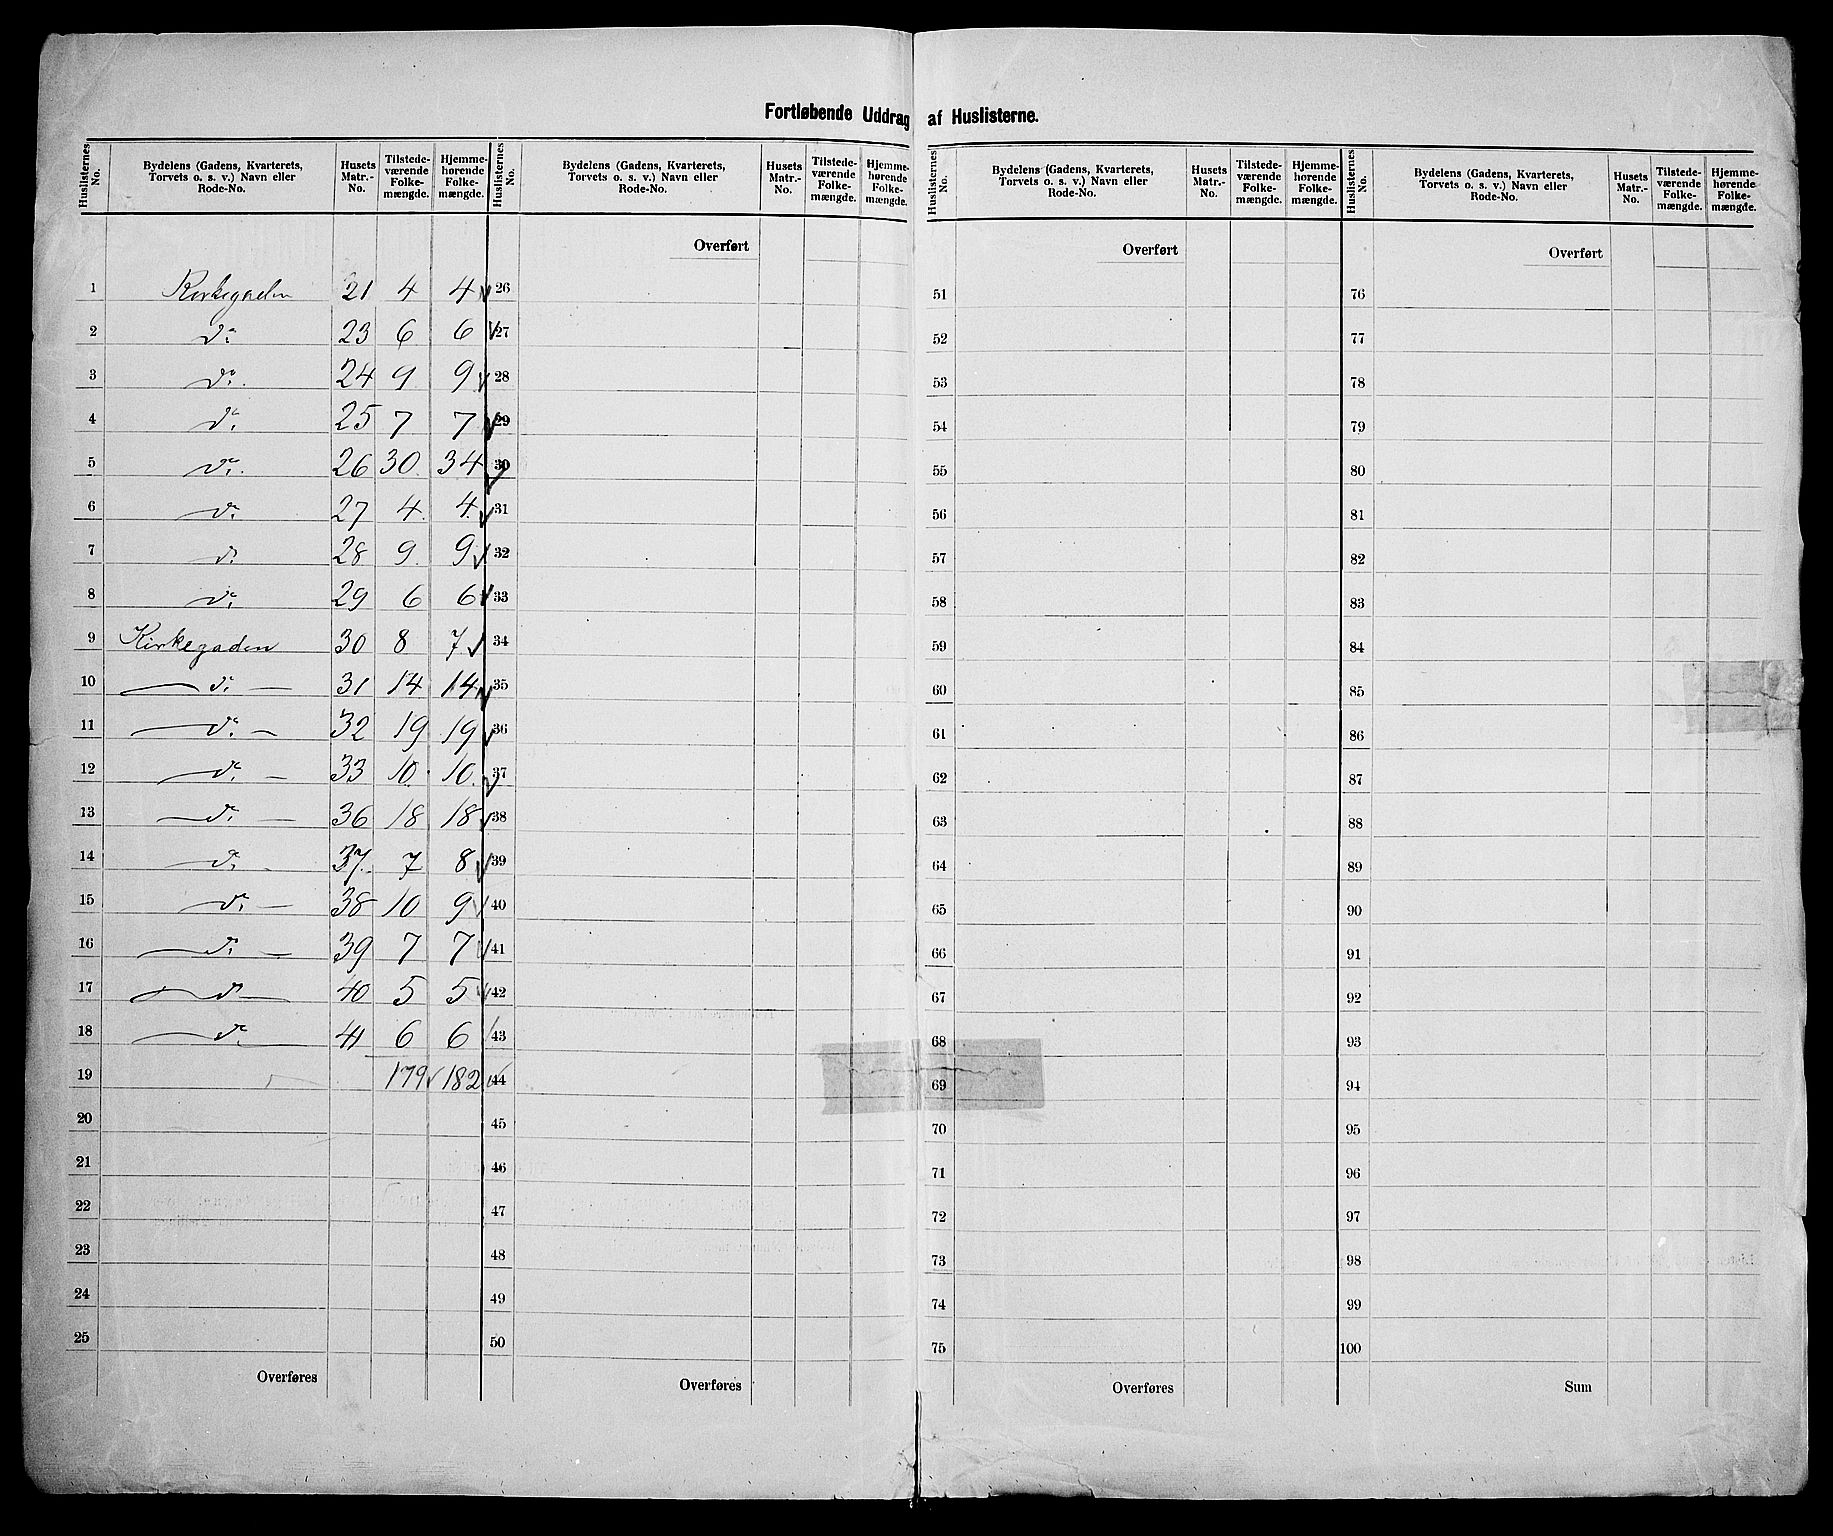 Fortløbende Uddrag af Huslisterne.
Huslisternes No. | Bydelens (Gadens, Kvarterets, Torvets o. s. v.) Navn eller Rode-No. | Husets Matr.-No. | Tilstedeværende Folkemængde. | Hjemmehørende Folkemængde. | Huslisternes No. | Bydelens (Gadens, Kvarterets, Torvets o. s. v.) Navn eller Rode-No. | Husets Matr.-No. | Tilstedeværende Folkemængde. | Hjemmehørende Folkemængde. | Huslisternes No. | Bydelens (Gadens, Kvarterets, Torvets o. s. v.) Navn eller Rode-No. | Husets Matr.-No. | Tilstedeværende Folkemængde. | Hjemmehørende Folkemængde. | Huslisternes No. | Bydelens (Gadens, Kvarterets, Torvets o. s. v.) Navn eller Rode-No. | Husets Matr.-No. | Tilstedeværende Folkemængde. | Hjemmehørende Folkemængde.
Overført Overført Overført
1 Kirkegaden 21 4 4 ✓ 26 51 76
2 do 23 6 6 ✓ 27 52 77
3 do 24 9 9 ✓ 28 53 78
4 do 25 7 7 ✓ 29 54 79
5 do 26 30 34 ✓ 30 55 80
6 do 27 4 4 ✓ 31 56 81
7 do 28 9 9 ✓ 32 57 82
8 do 29 6 6 ✓ 33 58 83
9 Kirkegaden 30 8 7 ✓ 34 59 84
10 — do — 31 14 14 ✓ 35 60 85
11 — do — 32 19 19 ✓ 36 61 86
12 — do — 33 10 10 ✓ 37 62 87
13 — do — 36 18 18 ✓ 38 63 88
14 — do — 37 7 8 ✓ 39 64 89
15 do — 38 10 9 ✓ 40 65 90
16 — do — 39 7 7 ✓ 41 66 91
17 — do — 40 5 5 ✓ 42 67 92
18 — do 41 6 6 ✓ 43 68 93
19 179 ✓ 182 ✓ 44 69 94
20 45 70 95
21 46 71 96
22 47 72 97
23 48 73 98
24 49 74 99
25 50 75 100
Overføres Overføres Overføres Sum